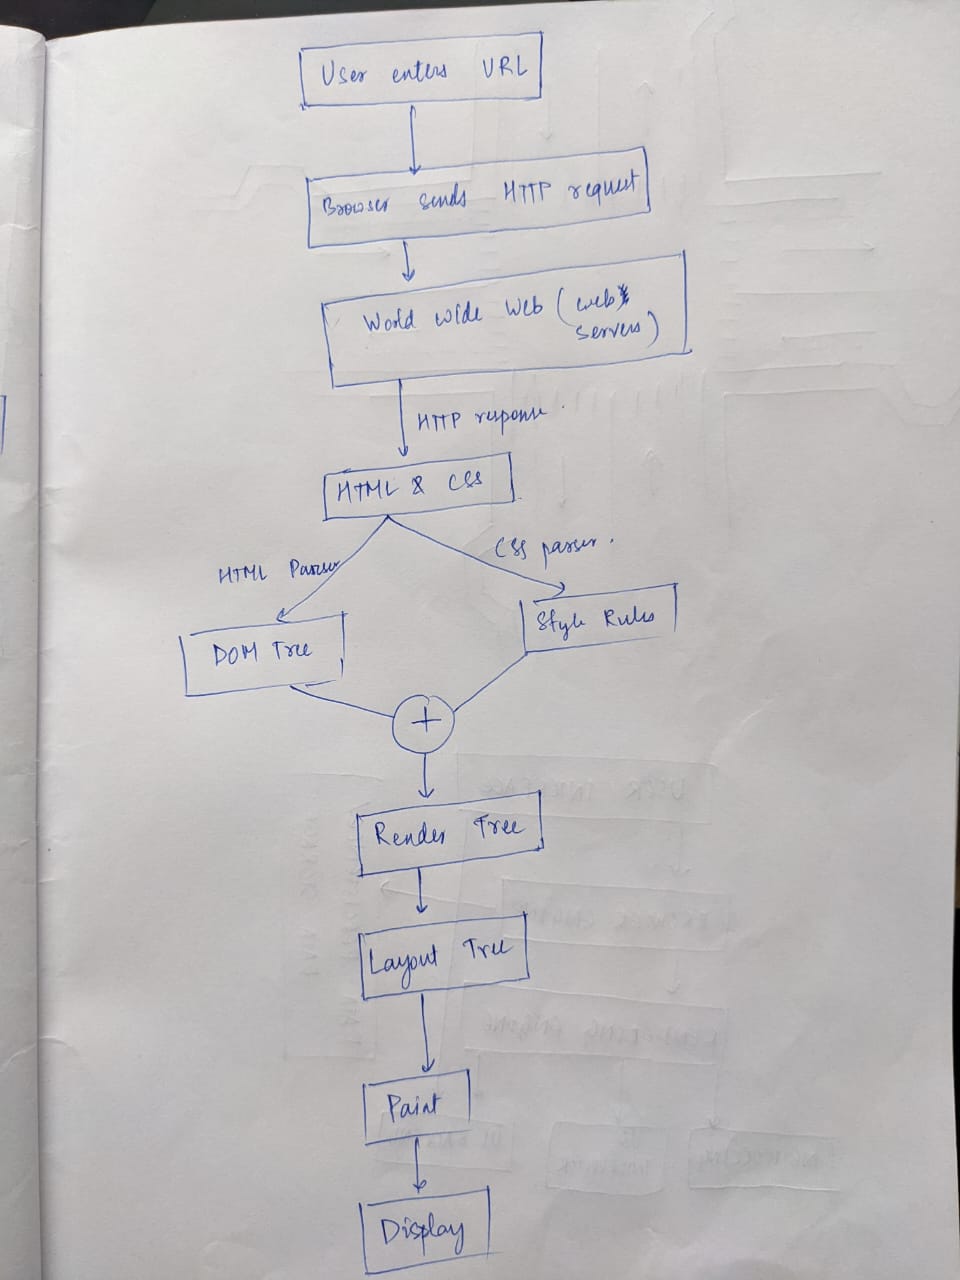 User enters URL
Browser sends HTTP request
World wide web (web
servers)
HTTP response.
HTML & CSS
HTML Parser
CSS parser.
DOM Tree
Style Rules
+
Render Tree
Layout Tree
Paint
Display
USER INTERFACE